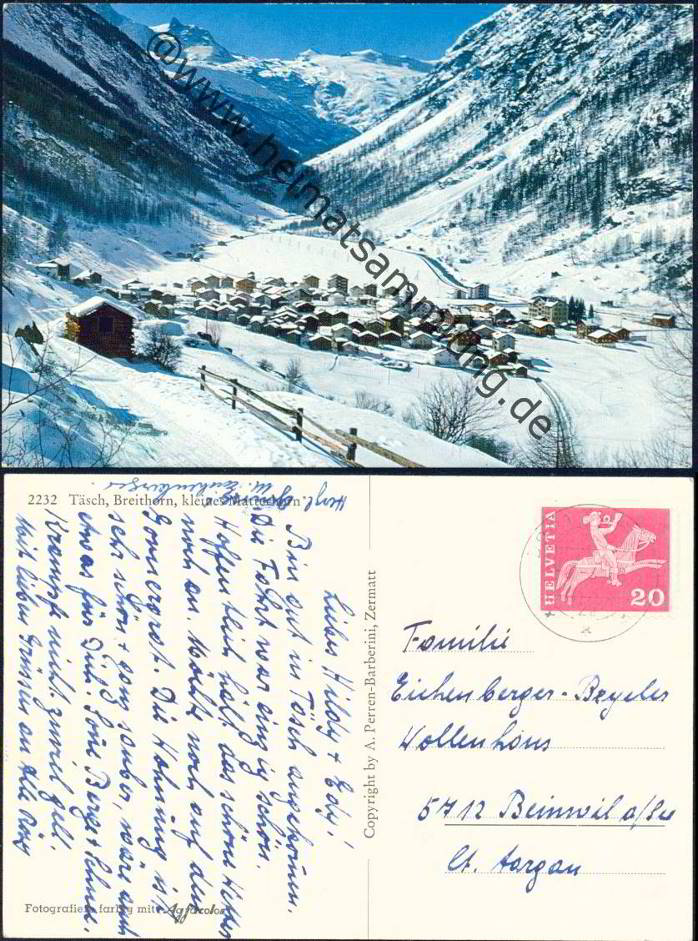 @www.heimatsammlung.de
2232 Täsch, Breithorn, kleines Matterhorn
HELVETIA
20
Copyright by A. Perren-Barberini, Zermatt
Familie
Eichenberger-Beyeler
Wollenhaus
5712 Beinwil a/See
Ct. Aargau
Liebe Hildy + Edy!
Bin gut in Täsch angekommen.
Die Fahrt war einzig schön.
Hoffentlich hält das schöne Wetter
noch an. Möchte noch auf den
Gornergrat. Die Wohnung ist
sehr nett + ganz sauber, wäre auch
etwas für Euch. Berge + Schnee.
Krampft nicht zuviel gell.
Mit lieben Grüssen an alle
Fotografiert farbig mit Agfacolor